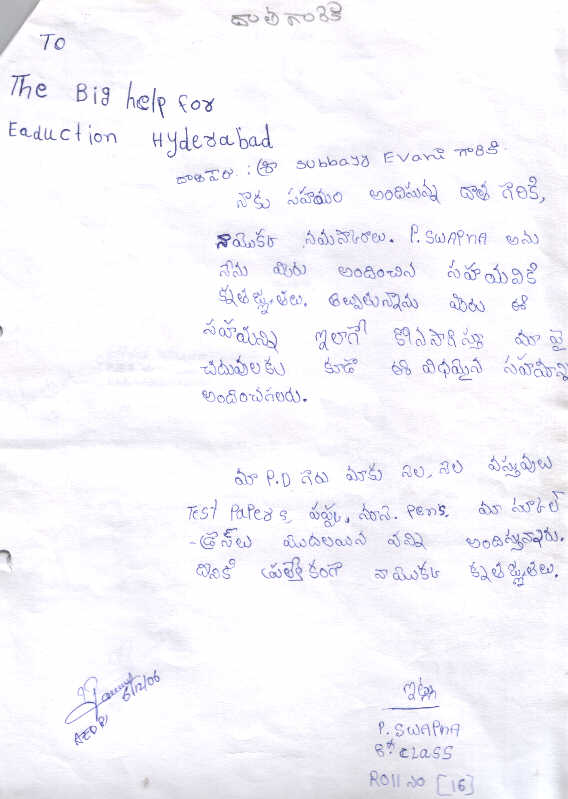 దాత గారికి
TO
The Big help for
Eaduction Hyderabad
దాతపేరు : శ్రీ Subbayy Evani గారికి.
నాకు సహయం అందిస్తున్న దాత గారికి,
నాయొక్క నమస్కారాలు. P. SWAPNA అను
నేను మీరు అందించిన సహయనికి
క్నతజ్ఞతలు. తెల్పుతున్నాను మీరు ఈ
సహయన్ని ఇలాగే కొనసాగిస్తూ మా పై
చదువులకు కూడా ఈ విధమైన సహయన్ని
అందించగలరు.
మా P.D గారు మాకు నెల, నెల వస్తువులు
Test Papers, పప్పు, నూనె. Pens, మా స్కూల్
-డ్రెస్‌లు మొదలయిన వన్ని అందిస్తున్నారు.
దినికి ప్రత్యేకంగా నాయొక్క క్నతజ్ఞతలు.
6/12/06
ఇట్లు
P. SWAPNA
8th CLASS
Roll No [16]